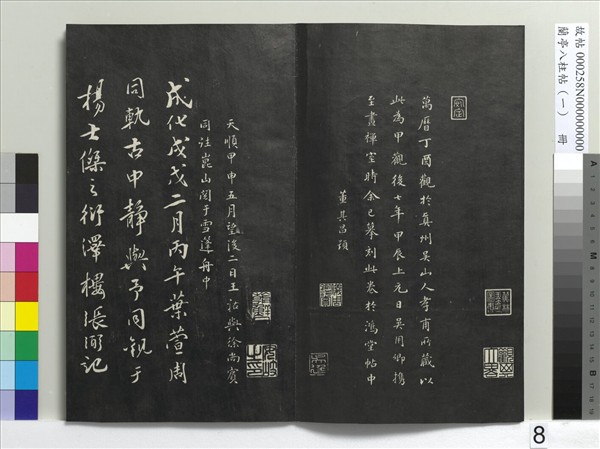 萬曆丁酉觀於真州吳山人孝甫所藏以
此為甲觀後七年甲辰上元日吳用卿攜
至畫禪室時余已摹刻此卷於鴻堂帖中
董其昌題
天順甲申五月望後二日王祐與徐尚賓
同注崑山閱于雪蓬舟中
成化戊戌二月丙午葉萱周
同軌古中靜與予同觀于
楊士傑之衍澤樓張淵記
故帖 000258N000000000
蘭亭八柱帖(一) 冊
8